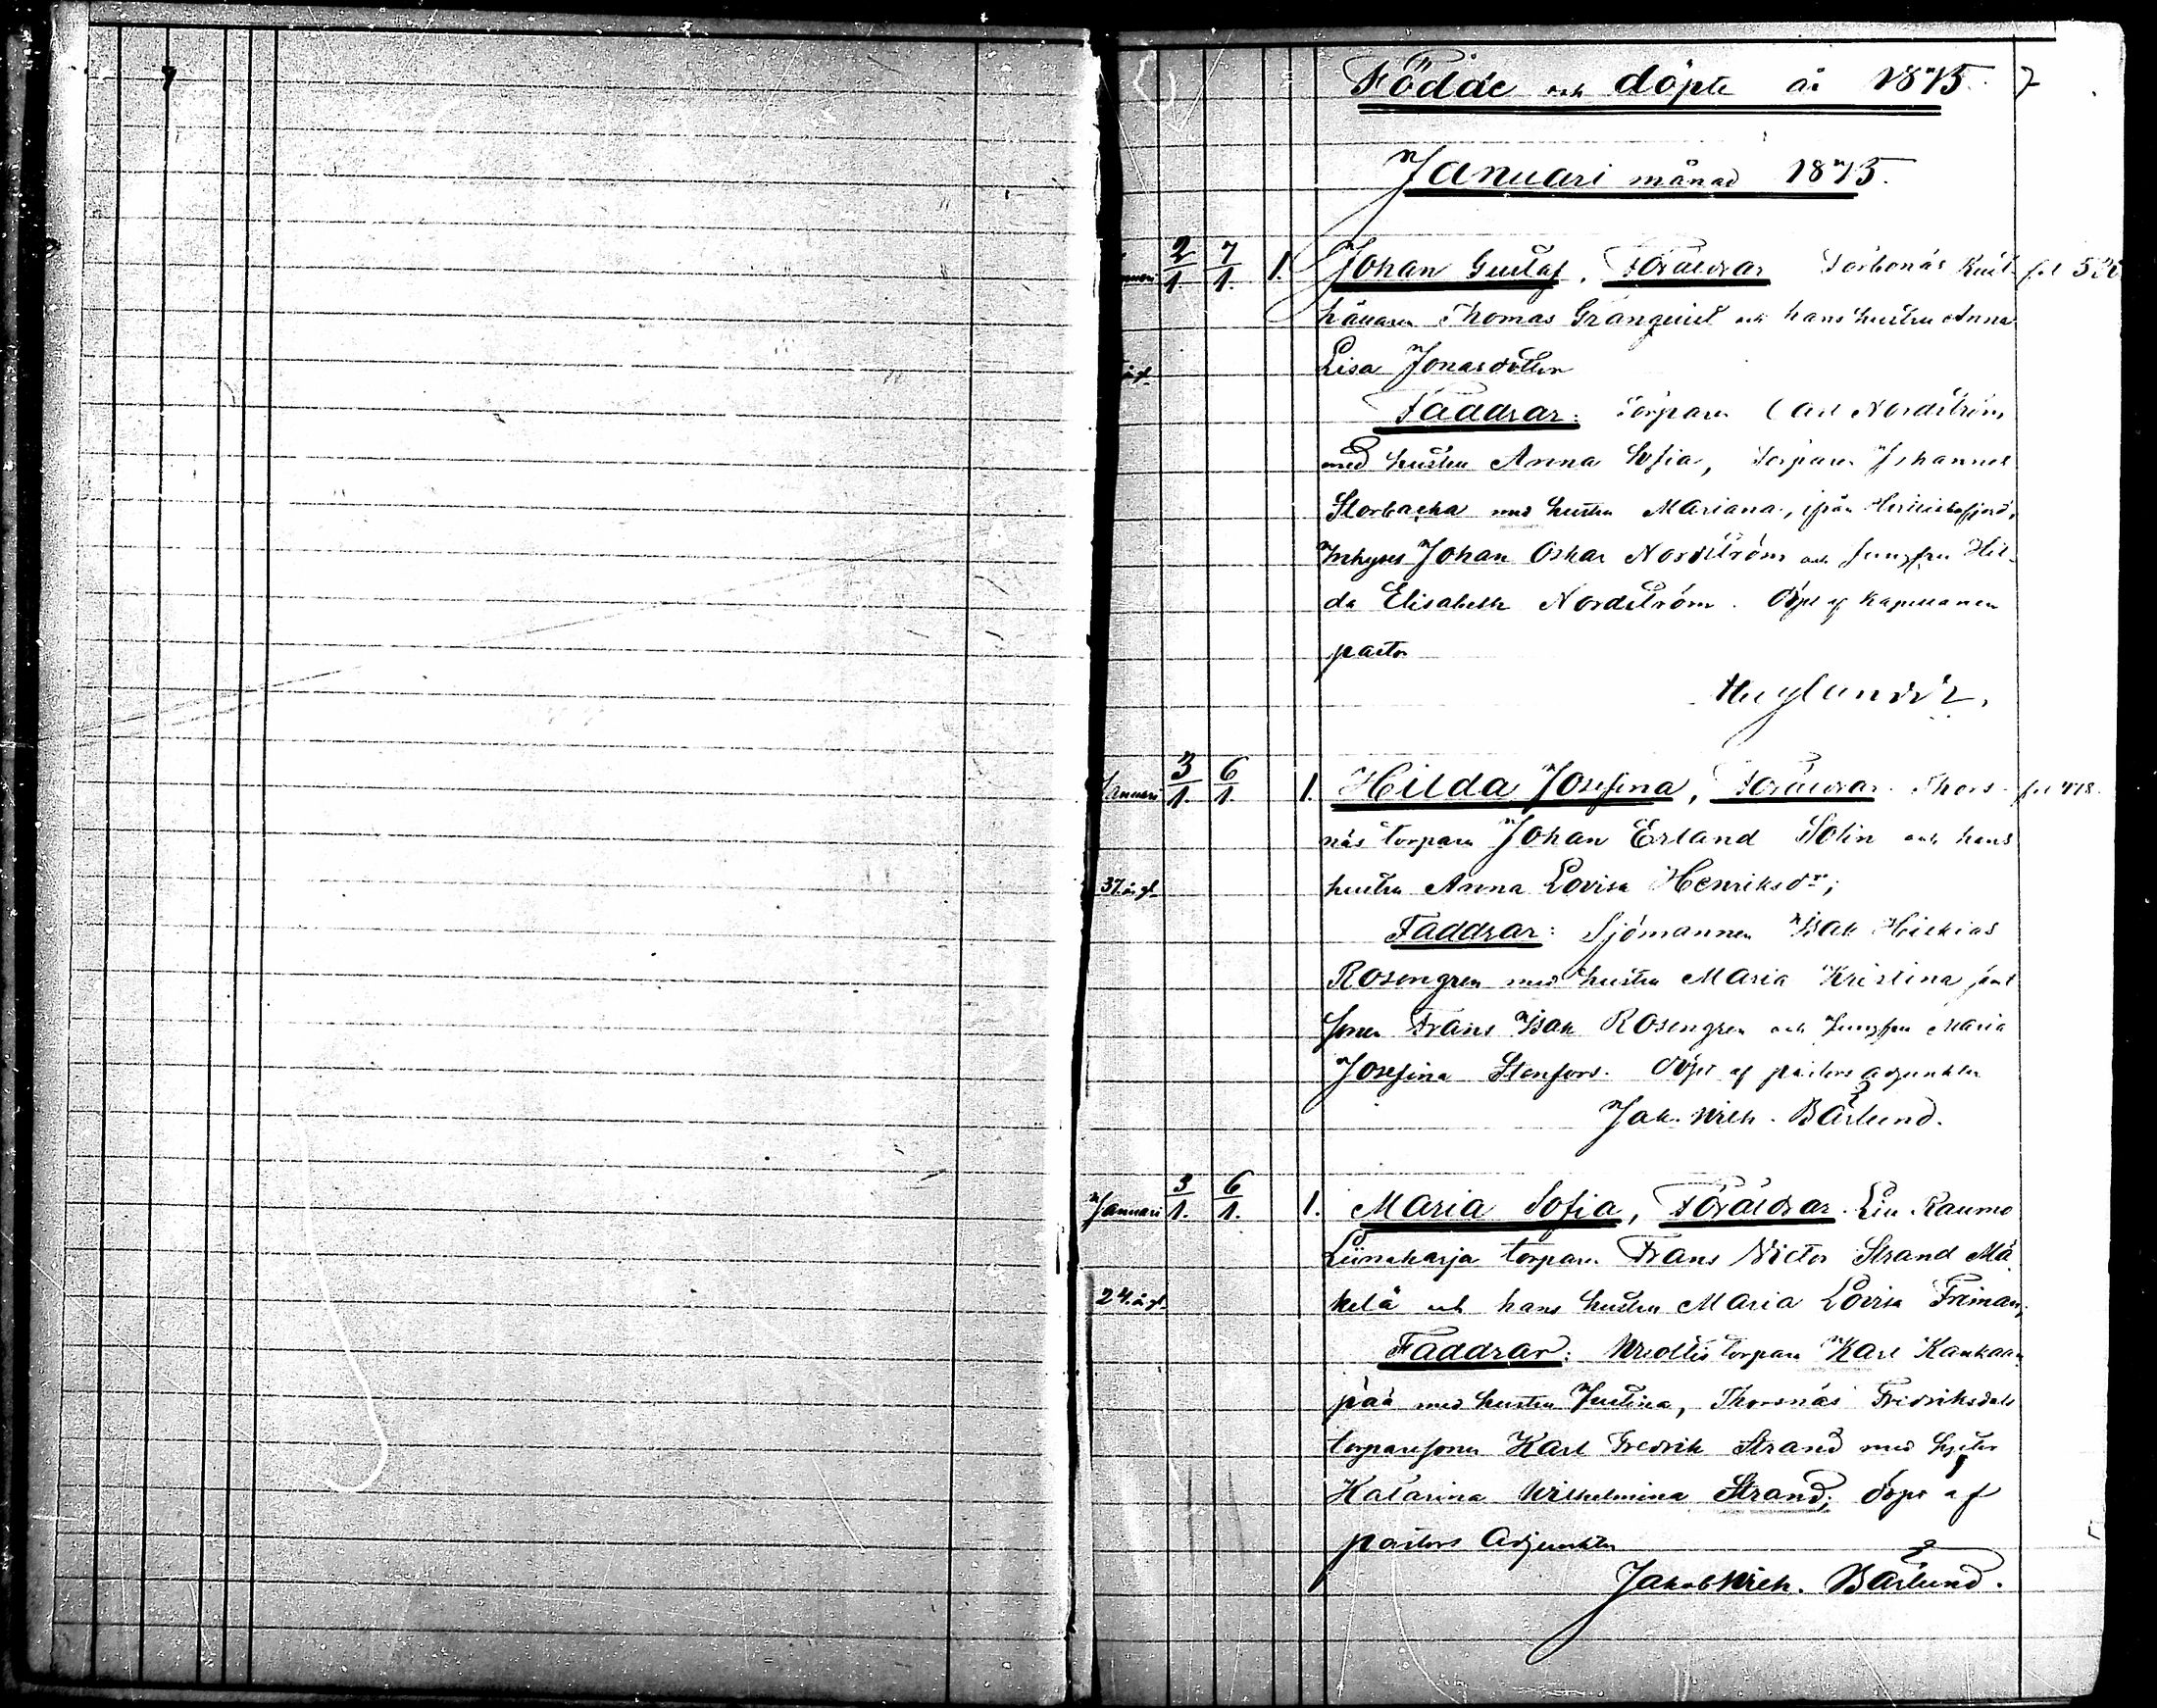 7
Födde och döpte år 1875. 7
Januari månad 1875.
2/1. 7/1. 1. Johan Gustaf. Föräldrar Torbonäs
hållaren Thomas Granquist och hans hustru Anna
Lisa Jonasdotter
Faddrar: Torparen Carl Nordström
med hustru Anna Sofia, Torparen Johannes
Storbacka med hustru Mariana, ifrån
Inhyses Johan Oskar Nordström och Jungfru Hil-
da Elisabeth Nordström. Döpt af Kapellanen
pastor
Januari 3/1. 6/1. 1. Hilda Josefina, Föräldrar Thors- fol 418.
näs torparen Johan Erland Solin och hans
37. år gl. hustru Anna Lovisa Henriksdr;
Faddrar: Sjömannen Isak
Rosengren med hustru Maria Kristina jemt
sonen Frans Isak Rosengren och Jungfru Maria
Josefina Stenfors. Döpt af pastors adjunkten
Jak. Wilh. Bärlund.
Januari 3/1. 6/1. 1. Maria Sofia, Föräldrar Raumo
Liinakarja torparen Frans Victor Strand Mä-
24. år gl. kelä och hans hustru Maria Lovisa Friman;
Faddrar: torparen Karl Kankaan-
pää med hustru Justina, Thorsnäs Fridriksdals
torparesonen Karl Fredrik Strand med Syster
Katarina Wilhelmina Strand; döpt af
pastors Adjunkten
Jakob Wilh. Bärlund.